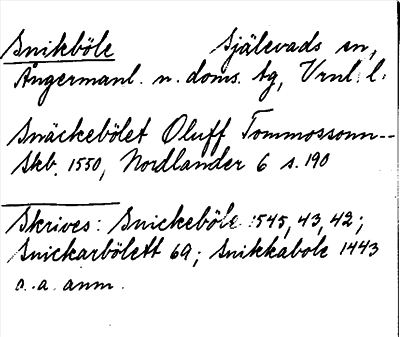 Snikböle Själevads sn,
Ångermanl. n. doms. tg, Vrnl. l.
Snäckebölet Oluff Tommossonn--
Skb. 1550, Nordlander 6 s. 190
Skrives: Snickeböle 1545, 43, 42;
Snickarbölett 69; Snikkabole 1443
o. a. anm.